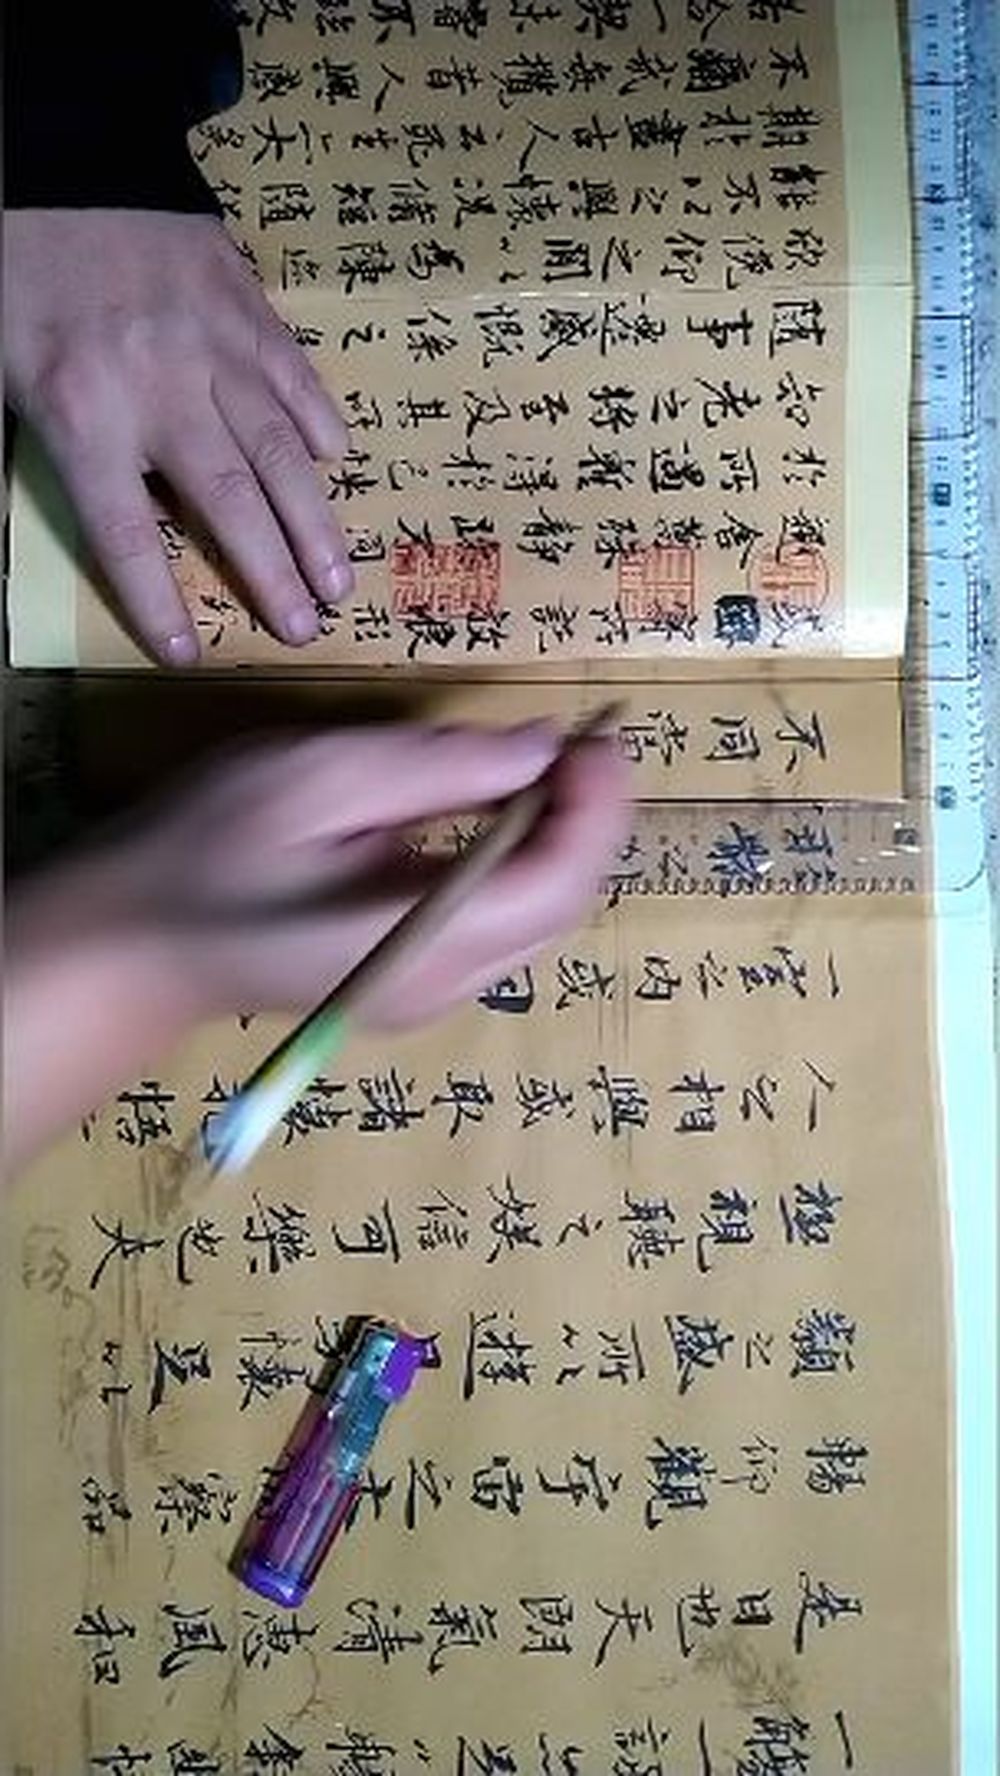 一觴一詠亦足以暢敘幽情
是日也天朗氣清惠風和
暢仰觀宇宙之大 察品
類之盛所以遊 騁懷足以
極視聽之娛信可樂也夫
人之相與或取諸懷抱悟
一室之內或因
形骸之外
不同當
或因寄所託放浪形骸之外
趣舍萬殊靜躁不同
於所遇暫得於己快
知老之將至及其所
隨事遷感慨係之矣
欣俛仰之閒以為陳迹
能不以之興懷況脩短隨化
期於盡古人云死生亦大矣
不痛哉每攬昔人興感
若合一契未嘗不臨文